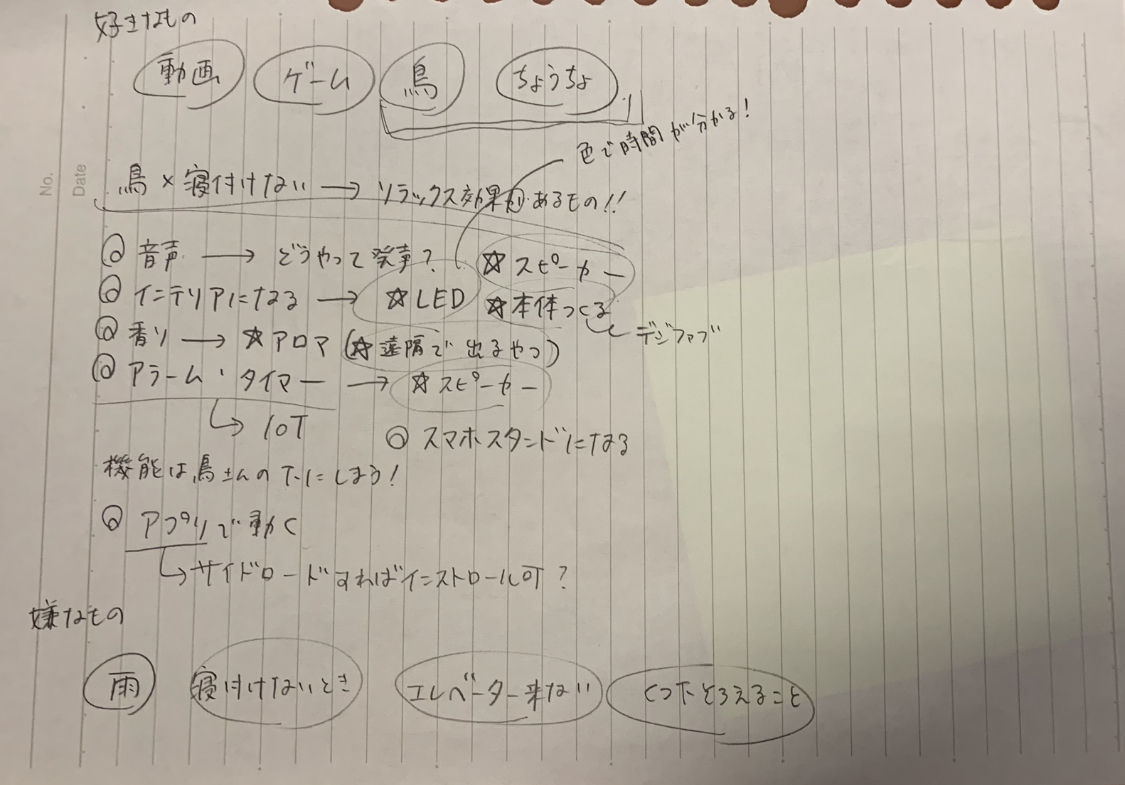 好きなもの
動画 ゲーム 鳥 ちょうちょ
色で時間が分かる!
No.
Date
鳥×寝付けない → リラックス効果のあるもの!!
◎ 音声 → どうやって発声? ☆スピーカー
◎ インテリアになる → ☆LED ☆本体つくる
デジファブ
◎ 香り → ☆アロマ (☆遠隔で出るやつ)
◎ アラーム・タイマー → ☆スピーカー
↳ IoT
◎ スマホスタンドになる
機能は鳥さんの下にしまう!
◎ アプリで動く
↳サイドロードすればインストロール可?
嫌なもの
雨 寝付けないとき エレベーター来ない くつ下そろえること